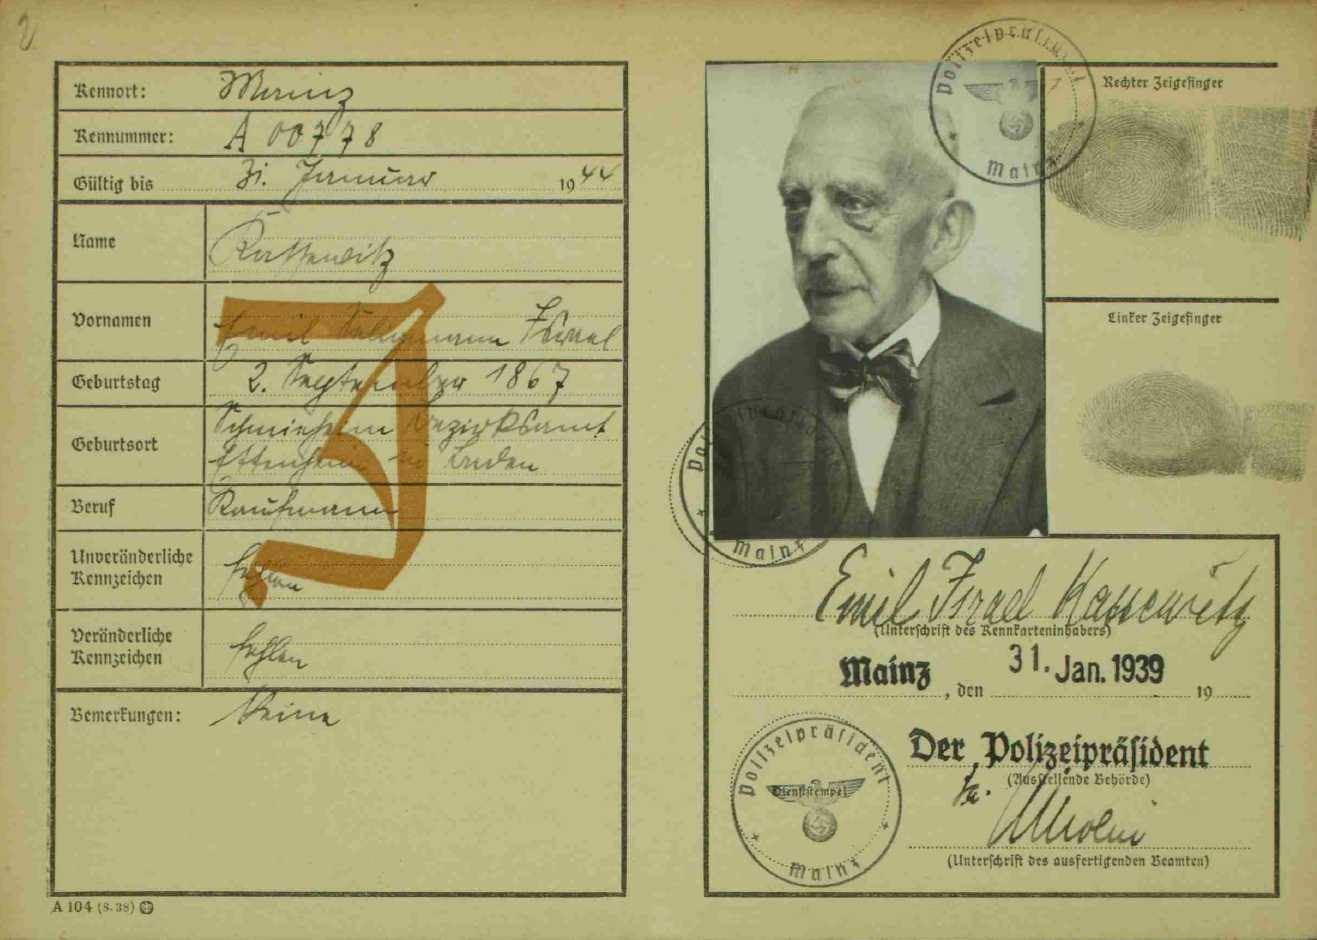 Kennort: Mainz
Kennummer: A 00778
Gültig bis 31. Januar 1944
Name Kassewitz
Vornamen Emil Israel
Geburtstag 2. September 1867
Geburtsort Schmieheim Bezirksamt
Ettenheim in Baden
Beruf Kaufmann
Unveränderliche
Kennzeichen fehlen
Veränderliche
Kennzeichen fehlen
Bemerkungen: Keine
J
A 104 (8. 38)
Polizeipräsident
Mainz
Rechter Zeigefinger
Linker Zeigefinger
Polizeipräsident
Mainz
Emil Israel Kassewitz
(Unterschrift des Kennkarteninhabers)
Mainz, den 31. Jan. 1939 19
Der Polizeipräsident
(Ausstellende Behörde)
(Unterschrift des ausfertigenden Beamten)
Polizeipräsident
Dienststempel
Mainz